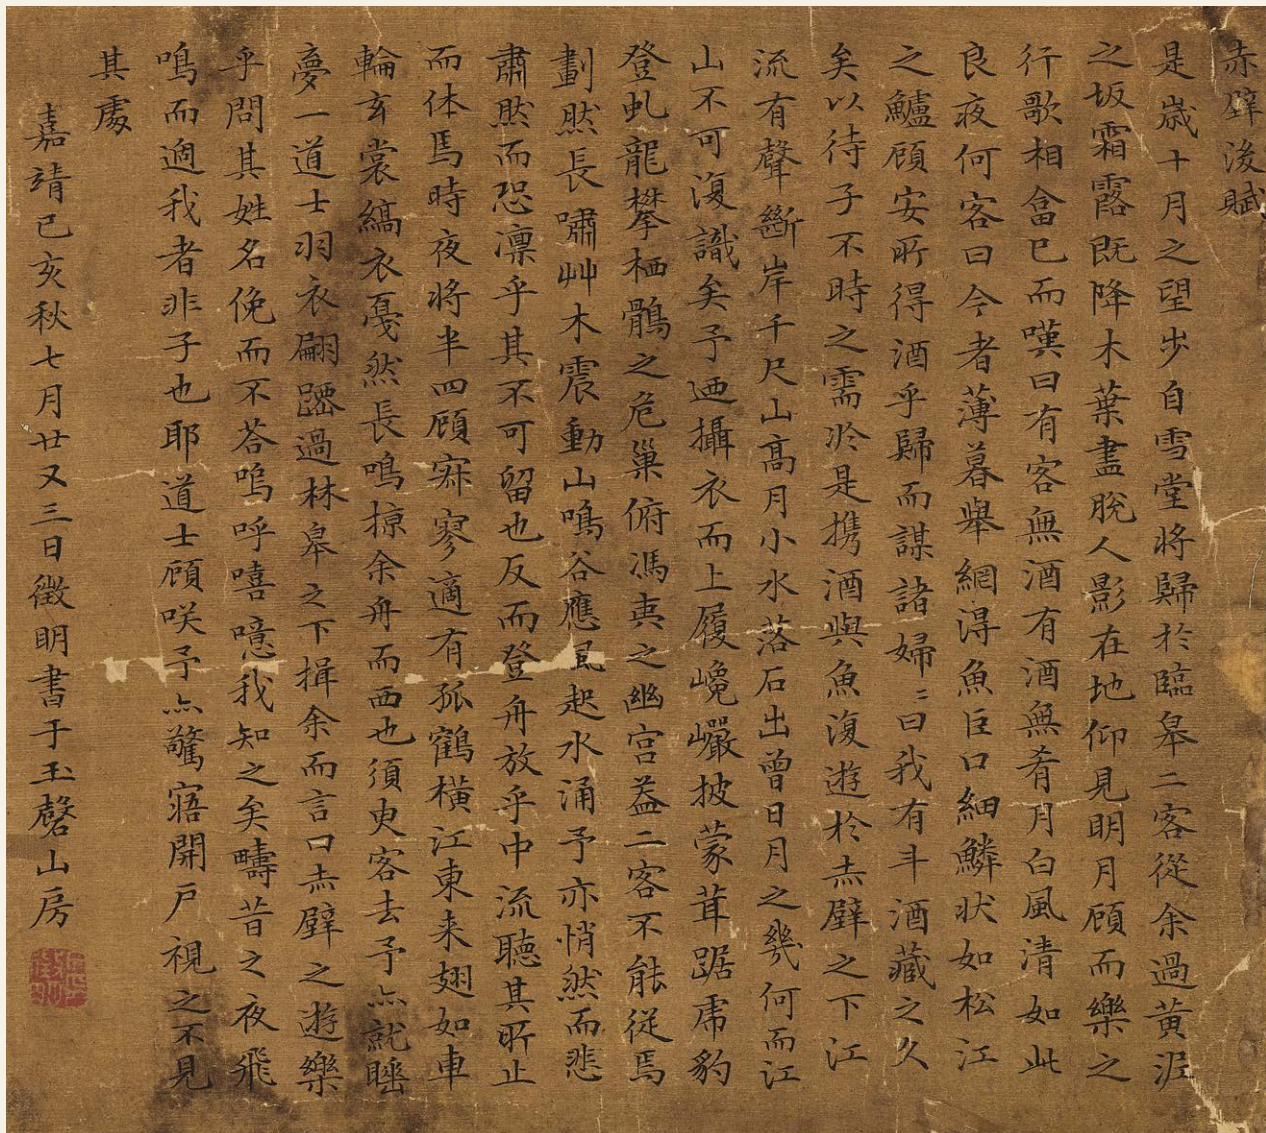 赤壁後賦
是歲十月之望步自雪堂將歸於臨皋二客從余過黃泥
之坂霜露既降木葉盡脫人影在地仰見明月顧而樂之
行歌相畣已而嘆曰有客無酒有酒無肴月白風清如此
良夜何客曰今者薄暮舉網得魚巨口細鱗狀如松江
之鱸顧安所得酒乎歸而謀諸婦〻曰我有斗酒藏之久
矣以待子不時之需於是攜酒與魚復遊於赤壁之下江
流有聲斷岸千尺山高月小水落石出曾日月之幾何而江
山不可復識矣予迺攝衣而上履巉巖披蒙茸踞虎豹
登虬龍攀栖鶻之危巢俯馮夷之幽宮葢二客不能從焉
劃然長嘯艸木震動山鳴谷應風起水涌予亦悄然而悲
肅然而恐凛乎其不可留也反而登舟放乎中流聽其所止
而休焉時夜將半四顧寂寥適有孤鶴橫江東来翅如車
輪玄裳縞衣戛然長鳴掠余舟而西也須臾客去予亦就睡
夢一道士羽衣翩躚過林皋之下揖余而言曰赤壁之遊樂
乎問其姓名俛而不荅嗚呼噫嘻我知之矣疇昔之夜飛
鳴而過我者非子也耶道士顧咲予亦驚寤開戶視之不見
其處
嘉靖己亥秋七月廿又三日徵明書于玉磬山房